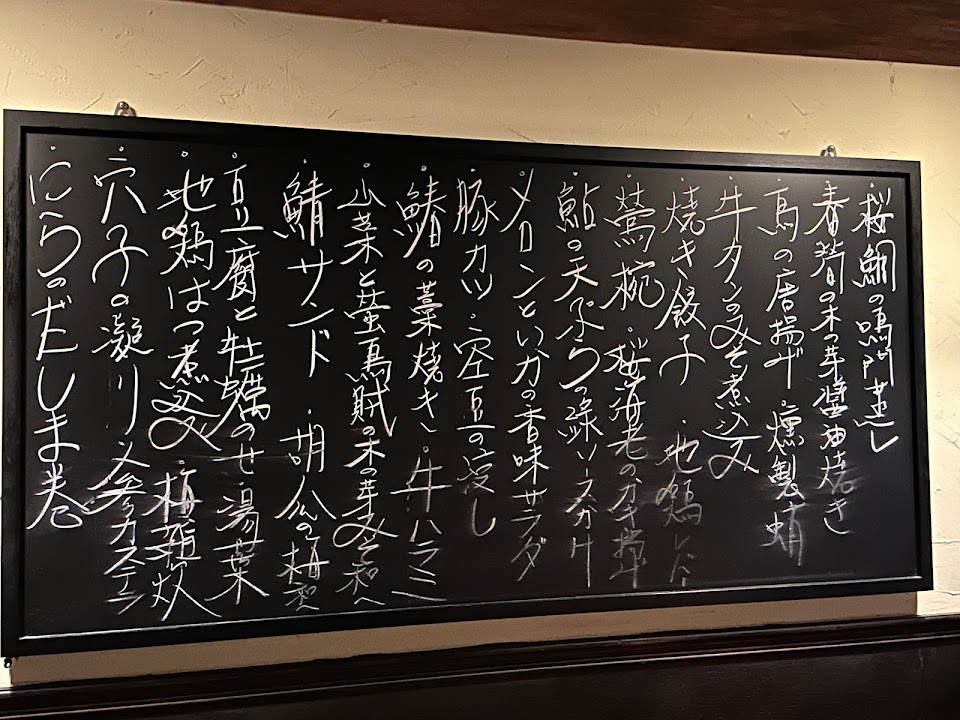 ・桜鯛の鳴門蒸し
・春筍の木の芽醤油焼き
・烏の唐揚げ・燻製蛸
・牛タンのみそ煮込み
・焼き餃子・地鶏レバー
・鶯椀・桜海老のかき揚
・鮎の天ぷらの緑ソースがけ
・メロンといかの香味サラダ
・豚カツ・空豆の浸し
・鰆の藁焼き・牛ハラミ
・山菜と蛍烏賊の木の芽みそ和へ
・鯖サンド・胡瓜の梅和へ
・豆腐と牡蠣のせ・湯葉
・地鶏はつ煮込み・梅雑炊
・穴子の凝り カステラ
・にらのだし ま巻